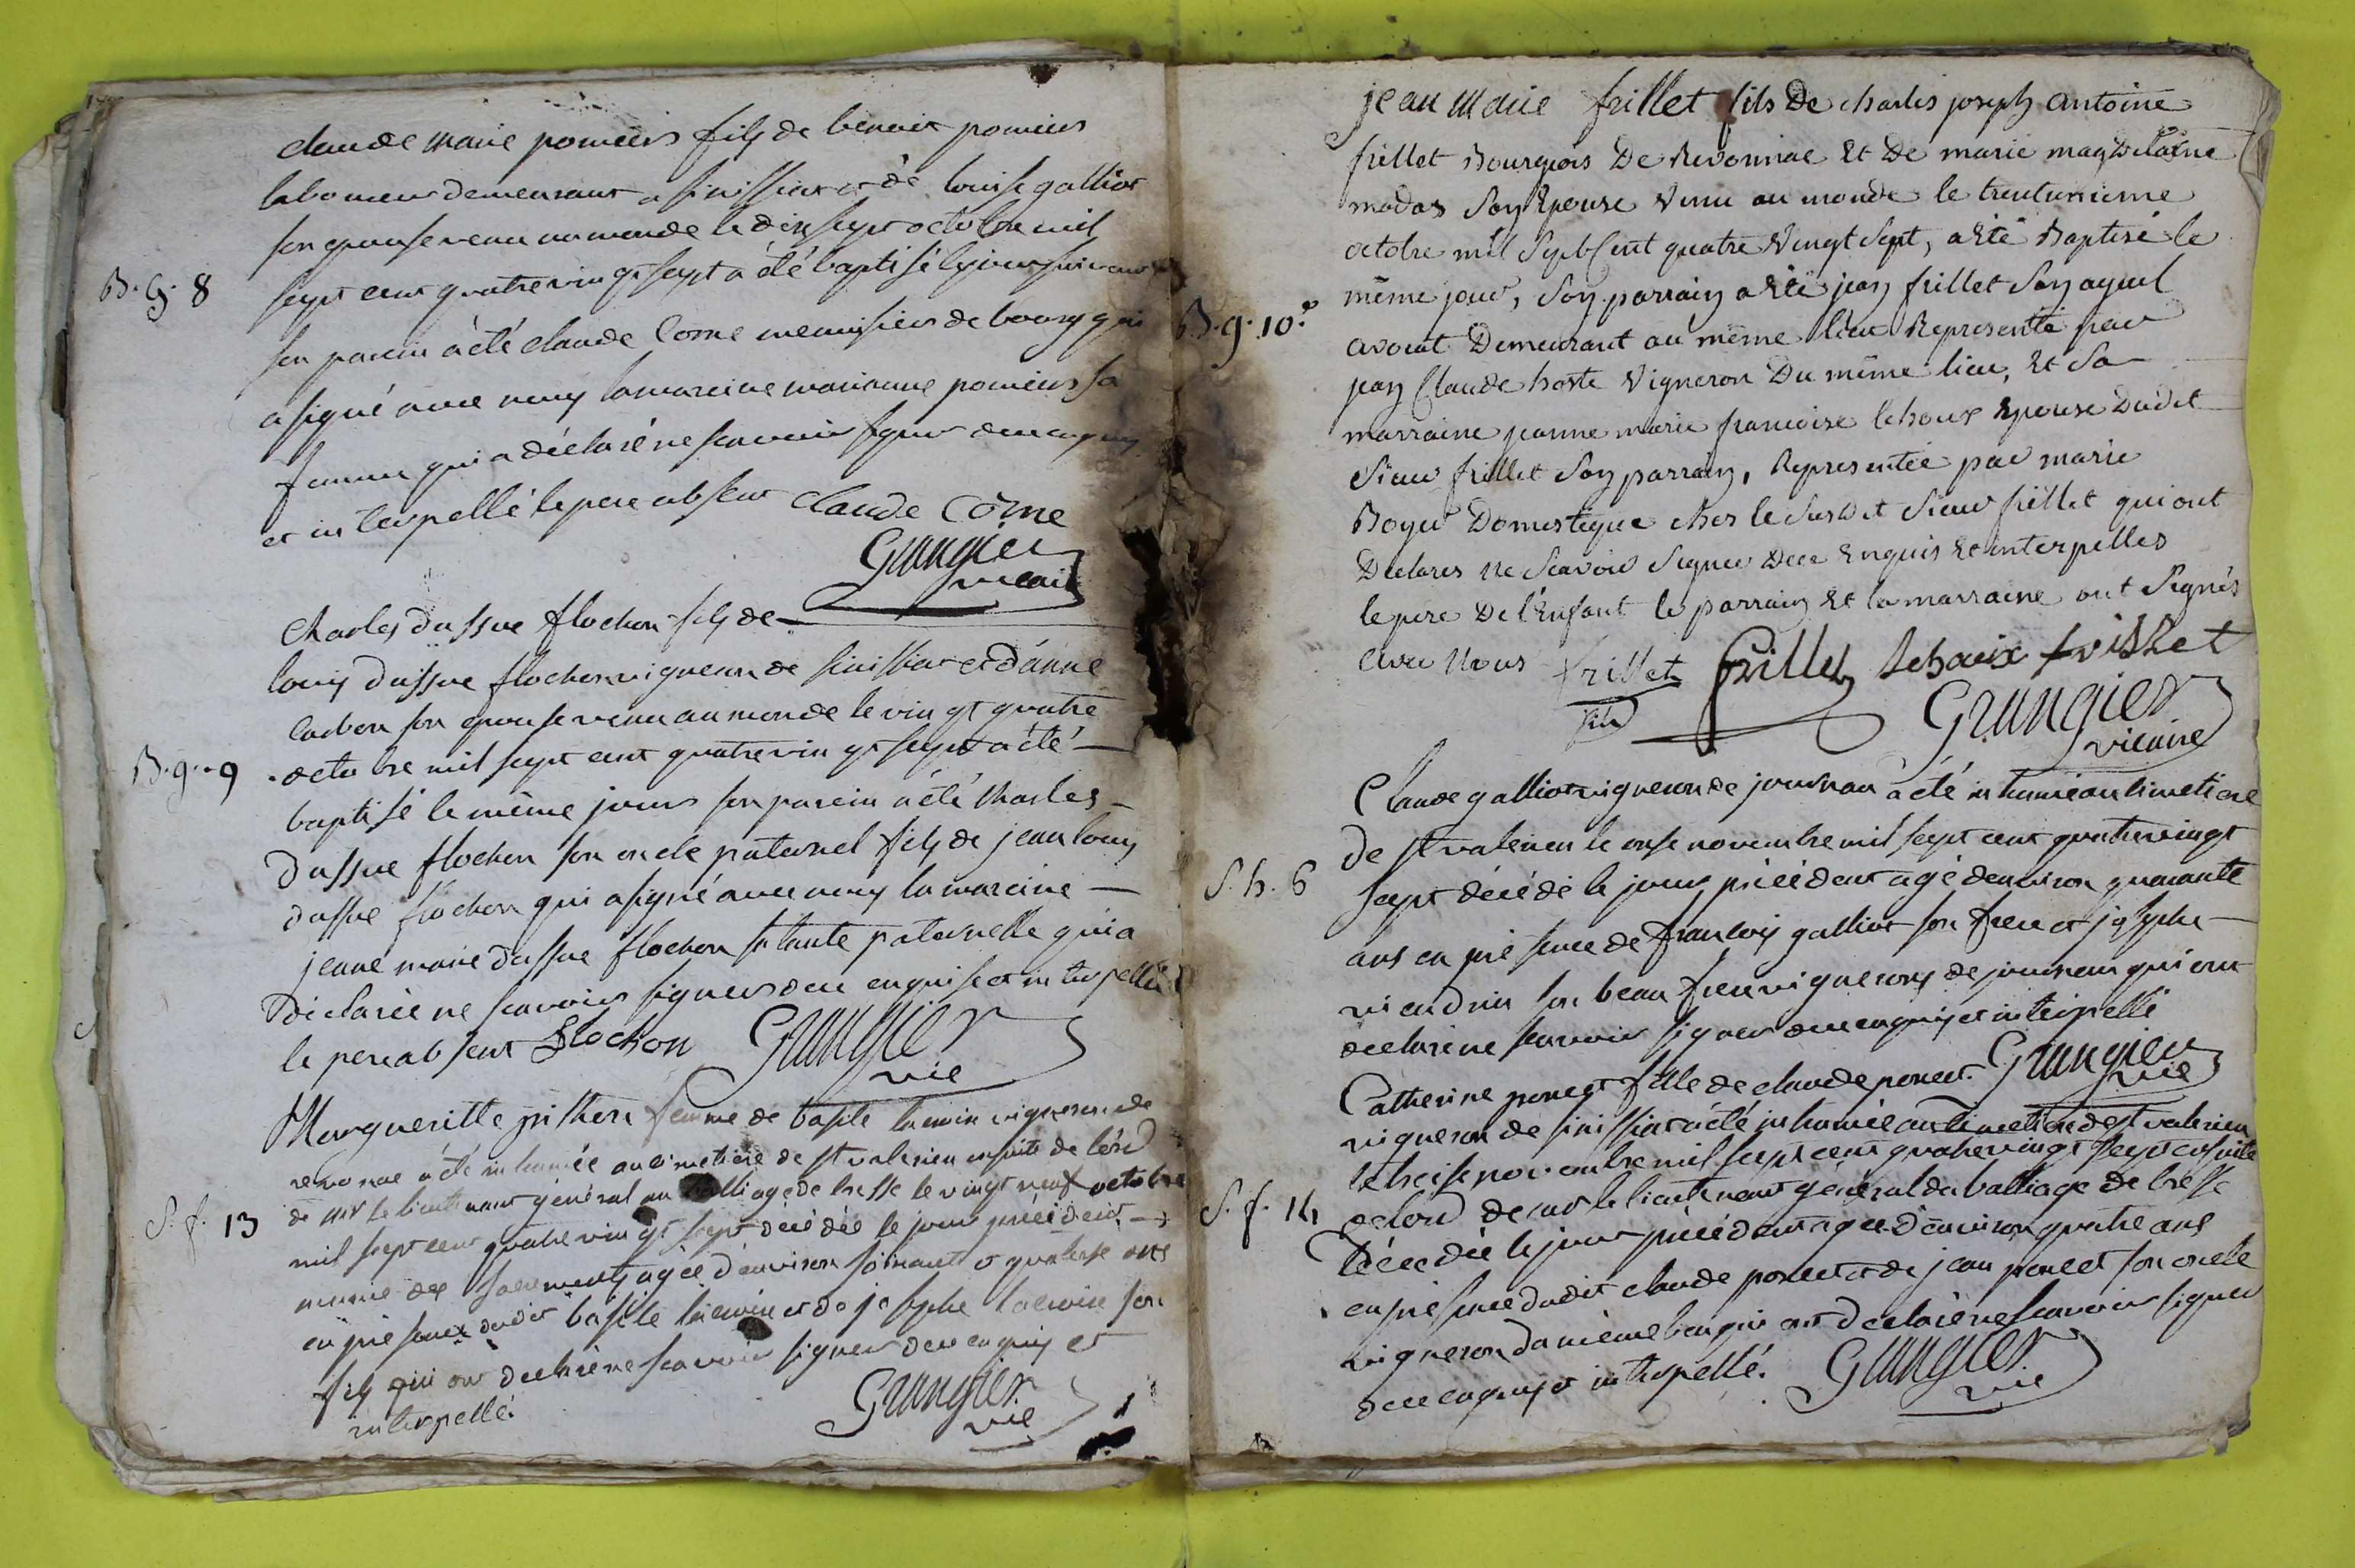 claude marie pomiers fils de benoit pomiers
laboureur demeurant a sinissiat et de louise galliot
son epouse venu au monde le dix sept octobre mil
B. g. 8
sept cent quatre vingt sept a été baptisé le jour suivant
son parein a été claude Come menuisier de bourg qui
a signé avec nous la mareine marianne pomiers sa
femme qui a déclaré ne scavoir signer de ce enquis
et interpellé le pere absent Claude Côme
Grangier
vicair
Charles dussue flochon fils de
louis dussue flochon vigneron de sinissiat et d'anne
son epouse venu au monde le vingt quatre
B. g. 9
octobre mil sept cent quatre vingt sept a été
baptisé le même jour son parein a été Charles
dussue flochon son oncle paternel fils de jean louis
dussue flochon qui a signé avec nous la mareine
jeane marie dussue flochon sa tante paternelle qui a
déclarée ne scavoir signer de ce enquise et interpellée
le pere absent Flochon Grangier
vic
Margueritte femme de basile vigneron de
revonae a été inhumée au cimetiere de st valerien ensuite de l'ord
de mr le lieutenant général au balliage de bresse le vingt neuf octobre
S. f. 13
mil sept cent quatre vingt sept décédée le jour précédent
munie des sacrements agée d'environ soixant et quatorze ans
en présence dudit basile et de josephe son
fils qui ont declaré ne scavoir signer de ce enquis et
interpellé.
Grangier
vic
jean Marie frillet fils De charles joseph antoine
frillet Bourgeois De Revonnae Et De marie magdelaine
madas Son Epouse Venu au monde le trenteunieme
octobre mil Sept Cent quatre Vingt Sept, a Eté Baptisé le
même jour, Son parrain a Eté jean frillet Son ayeul
B. g. 10.e
avocat Demeurant au même lieu Representé par
jean Claude hoste Vigneron Du même lieu, Et Sa
marraine jeanne marie francoise lehoux Epouse Dudit
Sieur frillet Son parrain, Representée par marie
Boyer Domestique ches le Susdit Sieur frillet qui ont
Declarés ne Scavoir Signer Dece Enquis Et interpellés
le pere De l'Enfant le parrain Et la marraine ont Signés
avec Nous frillet frillet lehaux frillet
fils
Grangier
vicaire
Claude galliot vigneron de journan a été inhumé au cimetiere
de st valerien le onse novembre mil sept cent quatre vingt
S. h. 6
sept décédé le jour précédent agé denviron quarante
ans en présence de francois galliot son frere et josephe
son beau frere vignerons de journan qui ont
declaré ne scavoir signer de ce enquis et interpellé
Grangier
vic
Catherine poncet fille de claude poncet
vigneron de sinissiat a été inhumée au cimetiere de st valerien
le treise novembre mil sept cent quatre vingt sept ensuite
S. f. 14
de lord de mr le lieutenant général du balliage de bresse
décédée le jour précédent agée d'environ quatre ans
en présence dudit claude poncet et de jean poncet son oncle
vigneron du même lieu qui ont déclaré ne scavoir signer
de ce enquis et interpellé. Grangier
vic